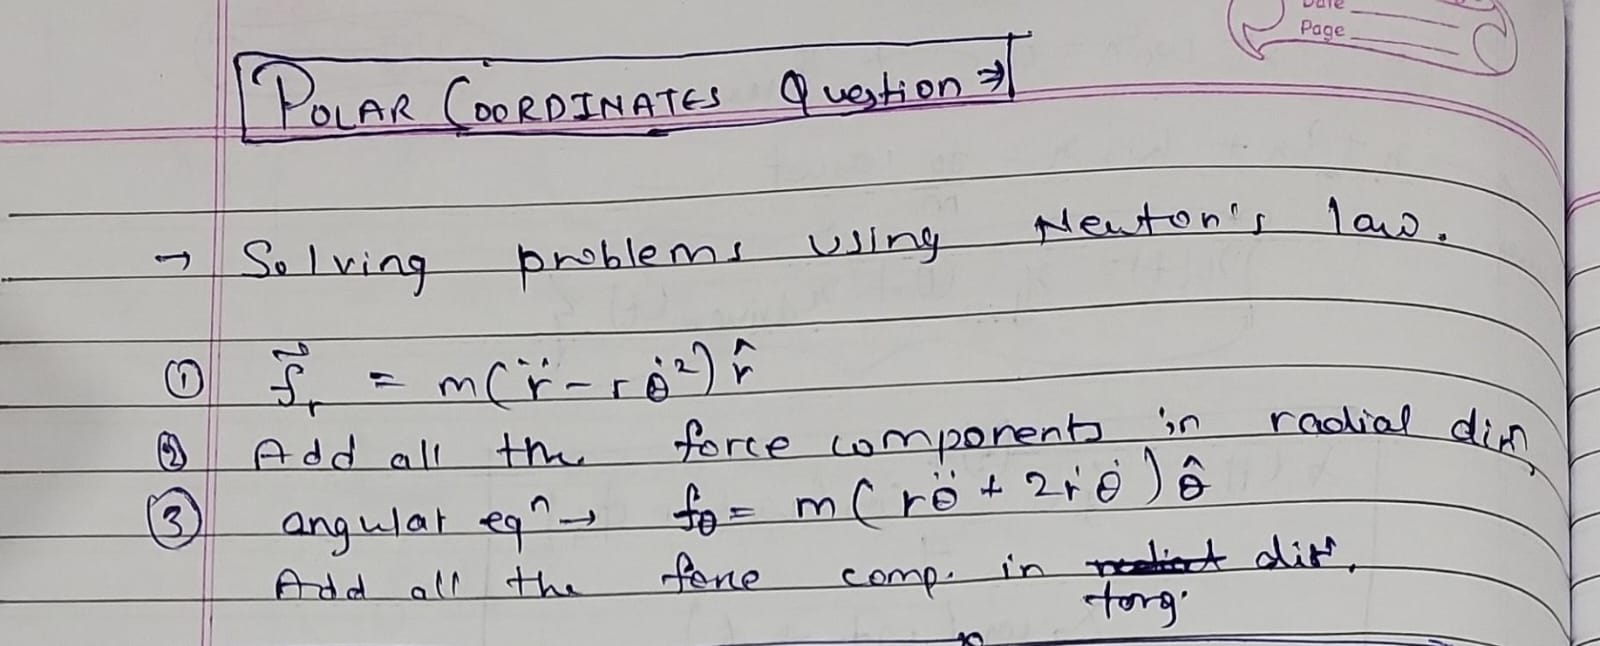 Date
Page
POLAR COORDINATES Question ⇒
→ Solving problems using Newton's law.
① f⃗_r = m(r̈ - rθ̇²) r̂
② Add all the force components in radial dirn,
③ angular eqⁿ → f_θ = m(rθ̈ + 2ṙθ̇) θ̂
Add all the force comp. in dirⁿ.
tang.